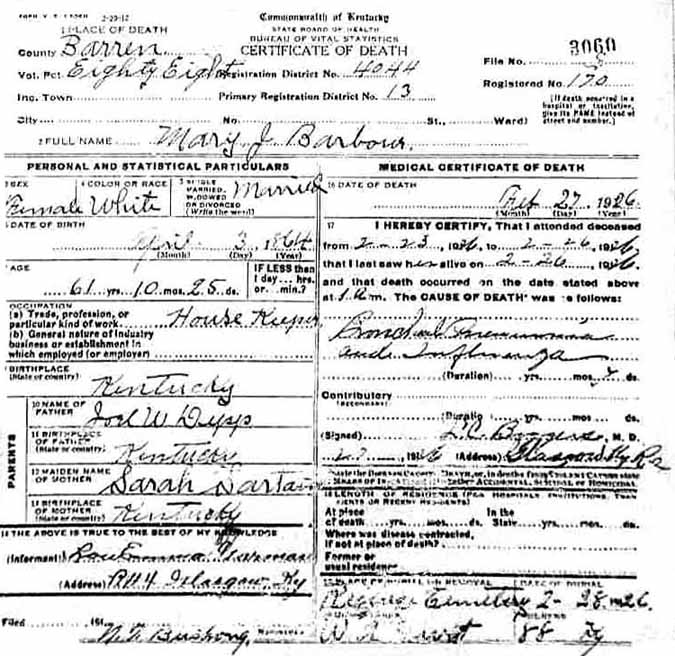 2-23-12
1 PLACE OF DEATH
Commonwealth of Kentucky
STATE BOARD OF HEALTH
BUREAU OF VITAL STATISTICS
CERTIFICATE OF DEATH
County Barren
Vot. Pct. Eighty Eight Registration District No. 4044
File No. 3060
Inc. Town Primary Registration District No. 13
Registered No. 170
(If death occurred in a hospital or institution, give its NAME instead of street and number.)
City No. St., Ward)
2 FULL NAME Mary J. Barbour
PERSONAL AND STATISTICAL PARTICULARS
3 SEX Female
4 COLOR OR RACE White
5 SINGLE MARRIED, WIDOWED OR DIVORCED (Write the word) Married
6 DATE OF BIRTH
April 3, 1864
(Month) (Day) (Year)
7 AGE
61 yrs. 10 mos. 25 ds.
IF LESS than 1 day... hrs. or... min.?
8 OCCUPATION
(a) Trade, profession, or particular kind of work House Keeper
(b) General nature of industry business or establishment in which employed (or employer)
9 BIRTHPLACE
(State or country) Kentucky
PARENTS
10 NAME OF FATHER Joel W Depp
11 BIRTHPLACE OF FATHER
(State or country) Kentucky
12 MAIDEN NAME OF MOTHER Sarah
13 BIRTHPLACE OF MOTHER
(State or country) Kentucky
14 THE ABOVE IS TRUE TO THE BEST OF MY KNOWLEDGE
(Informant)
(Address) R#4 Glasgow Ky
15
Filed 191
N. T. Bushong
MEDICAL CERTIFICATE OF DEATH
16 DATE OF DEATH
Feb 27, 1926
(Month) (Day) (Year)
17 I HEREBY CERTIFY, That I attended deceased
from 2-23, 1926, to 2-26, 1926
that I last saw her alive on 2-26, 1926
and that death occurred on the date stated above
at m. The CAUSE OF DEATH* was as follows:
Bronchial Pneumonia
and Influenza
(Duration) yrs. mos. ds.
Contributory
(SECONDARY)
(Duration) yrs. mos. ds.
(Signed) M. D.
1926 (Address) Glasgow Ky R2
*State the DISEASE CAUSING DEATH, or, in deaths from VIOLENT CAUSES state MEANS OF INJURY; and whether ACCIDENTAL, SUICIDAL or HOMICIDAL
18 LENGTH OF RESIDENCE (FOR HOSPITALS, INSTITUTIONS, TRANSIENTS OR RECENT RESIDENTS)
At place of death yrs. mos. ds. In the State yrs. mos. ds.
Where was disease contracted, if not at place of death?
Former or usual residence
19 PLACE OF BURIAL OR REMOVAL
Cemetery
DATE OF BURIAL
2-28 1926
88 Ky